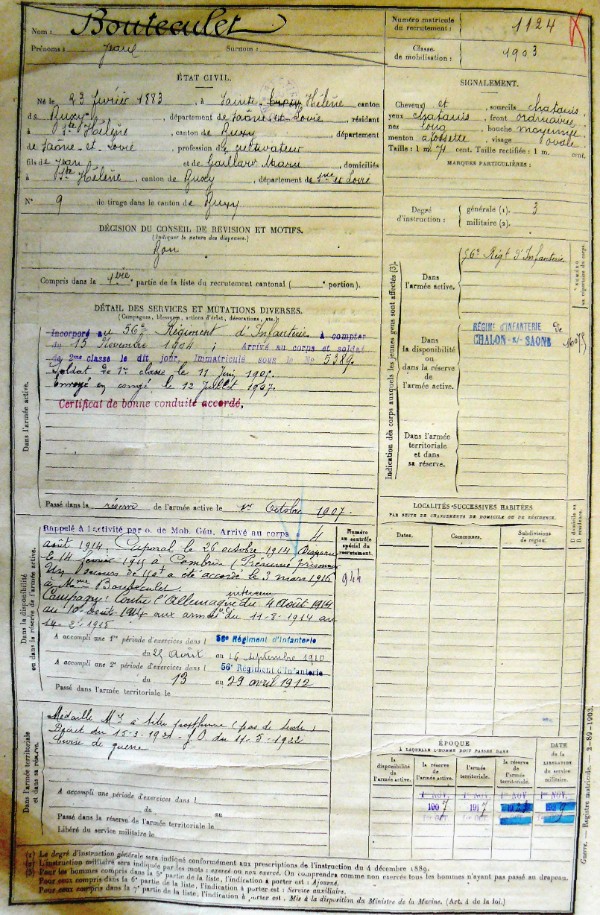 Nom : Bouteculet
Numéro matricule du recrutement : 1124
Prénoms : Jean Surnom :
Classe de mobilisation : 1903
ÉTAT CIVIL.
Né le 23 février 1883, à Sainte Hélène canton
de Buxy, département de Saône-et-Loire, résidant
à Ste Hélène, canton de Buxy, département
de Saône-et-Loire, profession de cultivateur
fils de Jean et de Gaillard Marie domiciliés
à Ste Hélène, canton de Buxy, département de Sne et Loire
N° 9 du tirage dans le canton de Buxy
SIGNALEMENT.
Cheveux et sourcils chatains
yeux chatains front ordinaire
nez long bouche moyenne
menton à fossette visage ovale
Taille : 1 m. 71 cent. Taille rectifiée : 1 m. cent.
MARQUES PARTICULIÈRES :
Degré d'instruction : générale (1). 3
militaire (2).
DÉCISION DU CONSEIL DE REVISION ET MOTIFS.
(Indiquer la nature des dispenses.)
Bon
Compris dans la 1ère partie de la liste du recrutement cantonal ( portion).
DÉTAIL DES SERVICES ET MUTATIONS DIVERSES.
(Campagnes, blessures, actions d'éclat, décorations, etc.)
Dans l'armée active.
Incorporé au 56e Régiment d'Infanterie À compter
du 15 Novembre 1904 ; Arrivé au corps et soldat
de 2me classe le dit jour. Immatriculé sous le No 5389.
Soldat de 1re classe le 11 Juin 190
envoyé en congé le 12 Juillet 1907.
Certificat de bonne conduite accordé.
Passé dans la réserve de l'armée active le 1er Octobre 1907.
Indication des corps auxquels les jeunes gens sont affectés (3).
Dans l'armée active.
56e Régt d'Infanterie
Dans la disponibilité ou dans la réserve de l'armée active.
RÉGIMt D'INFANTERIE de
CHALON s/ SAONE
Dans l'armée territoriale et dans sa réserve.
LOCALITÉS SUCCESSIVES HABITÉES
PAR SUITE DE CHANGEMENTS DE DOMICILE OU DE RÉSIDENCE.
Dates. Communes. Subdivisions de région. D domicile ou R résidence.
Dans la disponibilité ou dans la réserve de l'armée active.
Rappelé à l'activité par o. de Mob. Gén. Arrivé au corps 4
août 1914. Caporal le 26 octobre 1914 Disparu
le 14 février 1915 à Combres (Présumé prisonnier
Un secours de 150f a été accordé le 3 mars 1916
à Mme Bouteculet
Campagne : Contre l'Allemagne du 4 Août 1914
au 10 août 1914 aux armées du 11-8-1914 au
14-2-1915
Numéro au contrôle spécial du recrutement.
944
A accompli une 1re période d'exercices dans l 56e Régiment d'Infanterie
du 25 Août au 16 septembre 1910
A accompli une 2e période d'exercices dans l 56e Régiment d'Infanterie
du 13 au 29 avril 1912
Passé dans l'armée territoriale le
Dans l'armée territoriale et dans sa réserve.
Médaille Mre à titre posthume
du 15-2-1921 - JO du 11-5-1922
Croix de guerre
A accompli une période d'exercices dans l
du au
Passé dans la réserve de l'armée territoriale le
Libéré du service militaire le
ÉPOQUE
À LAQUELLE L'HOMME DOIT PASSER DANS
DATE DE LA LIBÉRATION du service militaire.
la disponibilité de l'armée active. la réserve de l'armée active. l'armée territoriale. la réserve de l'armée territoriale.
1er NOV. 1907 1er NOV. 1917 1er NOV. 1er NOV.
(1) Le degré d'instruction générale sera indiqué conformément aux prescriptions de l'instruction du 4 décembre 1889.
(2) L'instruction militaire sera indiquée par les mots : exercé ou non exercé. On comprendra comme non exercés tous les hommes n'ayant pas passé au drapeau.
(3) Pour les hommes compris dans la 5e partie de la liste, l'indication à porter est : Ajourné.
Pour ceux compris dans la 6e partie de la liste, l'indication à porter est : Service auxiliaire.
Pour ceux compris dans la 7e partie de la liste, l'indication à porter est : Mis à la disposition du Ministre de la Marine. (Art. 4 de la loi.)
Guerre. Registre matricule. 2-89-1903.